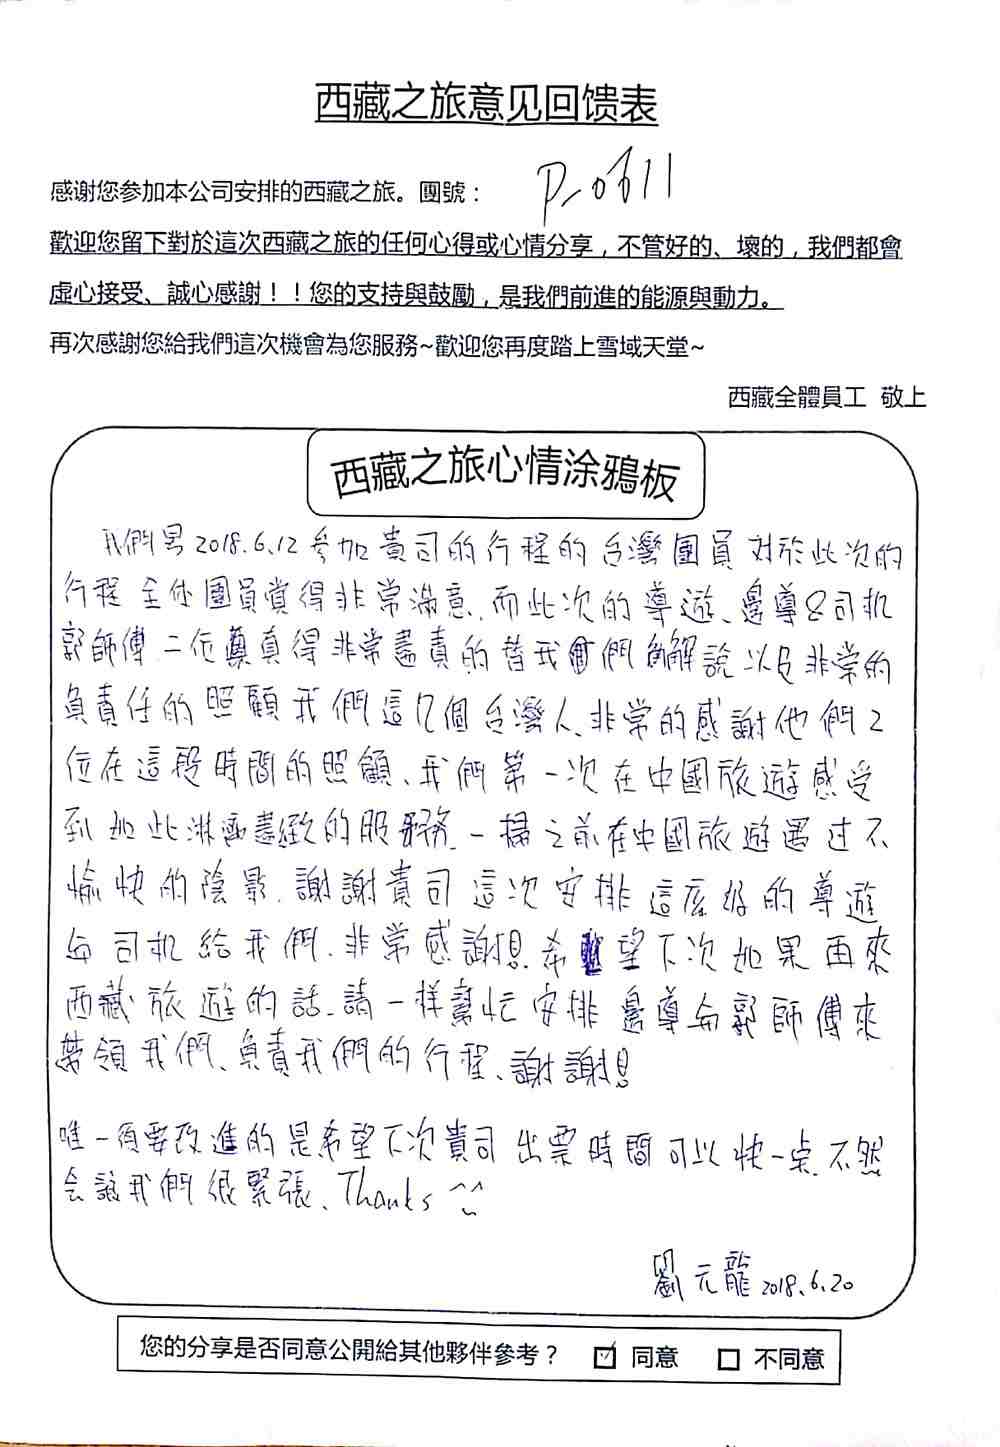 西藏之旅意见回馈表
感谢您参加本公司安排的西藏之旅。團號： P-0611
歡迎您留下對於這次西藏之旅的任何心得或心情分享，不管好的、壞的，我們都會
虛心接受、誠心感謝！！您的支持與鼓勵，是我們前進的能源與動力。
再次感謝您給我們這次機會為您服務~歡迎您再度踏上雪域天堂~
西藏全體員工 敬上
西藏之旅心情涂鴉板
我們是2018.6.12參加貴司的行程的台灣團員對於此次的
行程全体團員覺得非常滿意、而此次的導遊、邊導&司机
郭師傅二位真得非常盡責的替我們解說以及非常的
負責任的照顧我們這几個台灣人、非常的感謝他們2
位在這段時間的照顧、我們第一次在中國旅遊感受
到如此淋漓盡緻的服務、一掃之前在中國旅遊遇过不
愉快的陰影、謝謝貴司這次安排這麼好的導遊
与司机給我們、非常感謝!希望下次如果再來
西藏旅遊的話、請一樣幫忙安排邊導与郭師傅來
帶領我們、負責我們的行程、謝謝!
唯一須要改進的是希望下次貴司出票時間可以快一点、不然
会讓我們很緊張、Thanks ^^
劉元龍 2018.6.20
您的分享是否同意公開給其他夥伴參考？ ☑ 同意 □ 不同意